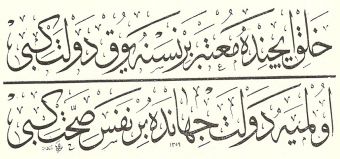 خلق ایچنده معتبر بر نسنه یوق دولت كبی
اولمیه دولت جهانده بر نفس صحت كبی